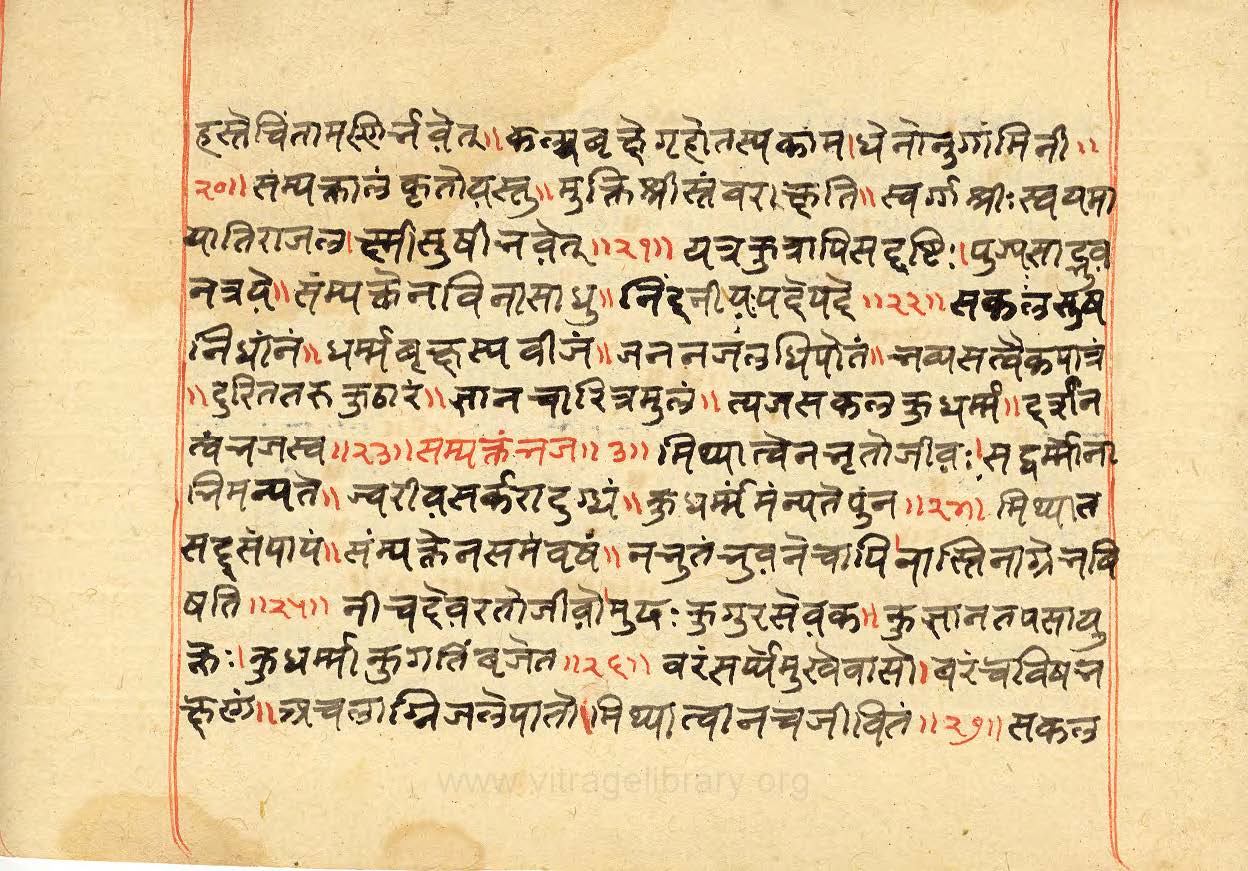 हस्ते चिंतामणिर्भवेत्॥ कल्पबृक्षे गृहे तस्य कांम।धेनोनुगांमिनी॥
२०॥ संम्यक्तालं कृतो यस्तु॥ मुक्ति श्रीस्तं वरा क्षति॥ स्वर्ग्ग श्रीः स्वयमा
याति राजल।क्ष्मी सुषी भवेत्॥२१॥ यत्र कुत्रापि सद्दृष्टिः। पुज्य साद्भुव
नत्रये॥ संम्यक्तेन विना साधु॥ निंद्नीयः पदे पदे॥२२॥ सकल सुष
निधांनं॥ धर्म्म बृक्षस्य वीजं॥ जनन जलधि पोतं॥ भव्य सत्वैक पात्रं
॥ दुरित तरु कुठारं॥ ज्ञान चारित्र मुलं॥ त्यज सकल कुधर्म्मं॥ दर्शन
त्वं भजस्व॥२३॥ सम्यक्तं भज॥३॥ मिथ्यात्वेन भृतो जीवः। सद्धर्म्मो ना
भिमन्यते॥ ज्वरीव सर्करा दुग्धं॥ कुधर्म्मं मंन्यते पुंन॥२४॥ मिथ्यात
सदृसं पापं॥ संम्यक्तेन समं वृषं॥ न भुतं भुवने चापि। नास्ति नाग्रे भवि
षति॥२५॥ नीच देवरतो जीवो। मुढः कुगुर सेवक॥ कुज्ञान तपसा यु
क्तैः। कुधर्म्मी कुगतिं बृजेत॥२६॥ वरं सर्प्पमुखे वासो। बरं च विष भ
क्षणं॥ अचलाग्नि जले पातो। मिथ्यात्वी न च जीवितं॥२७॥ सकल
www.vitragelibrary.org